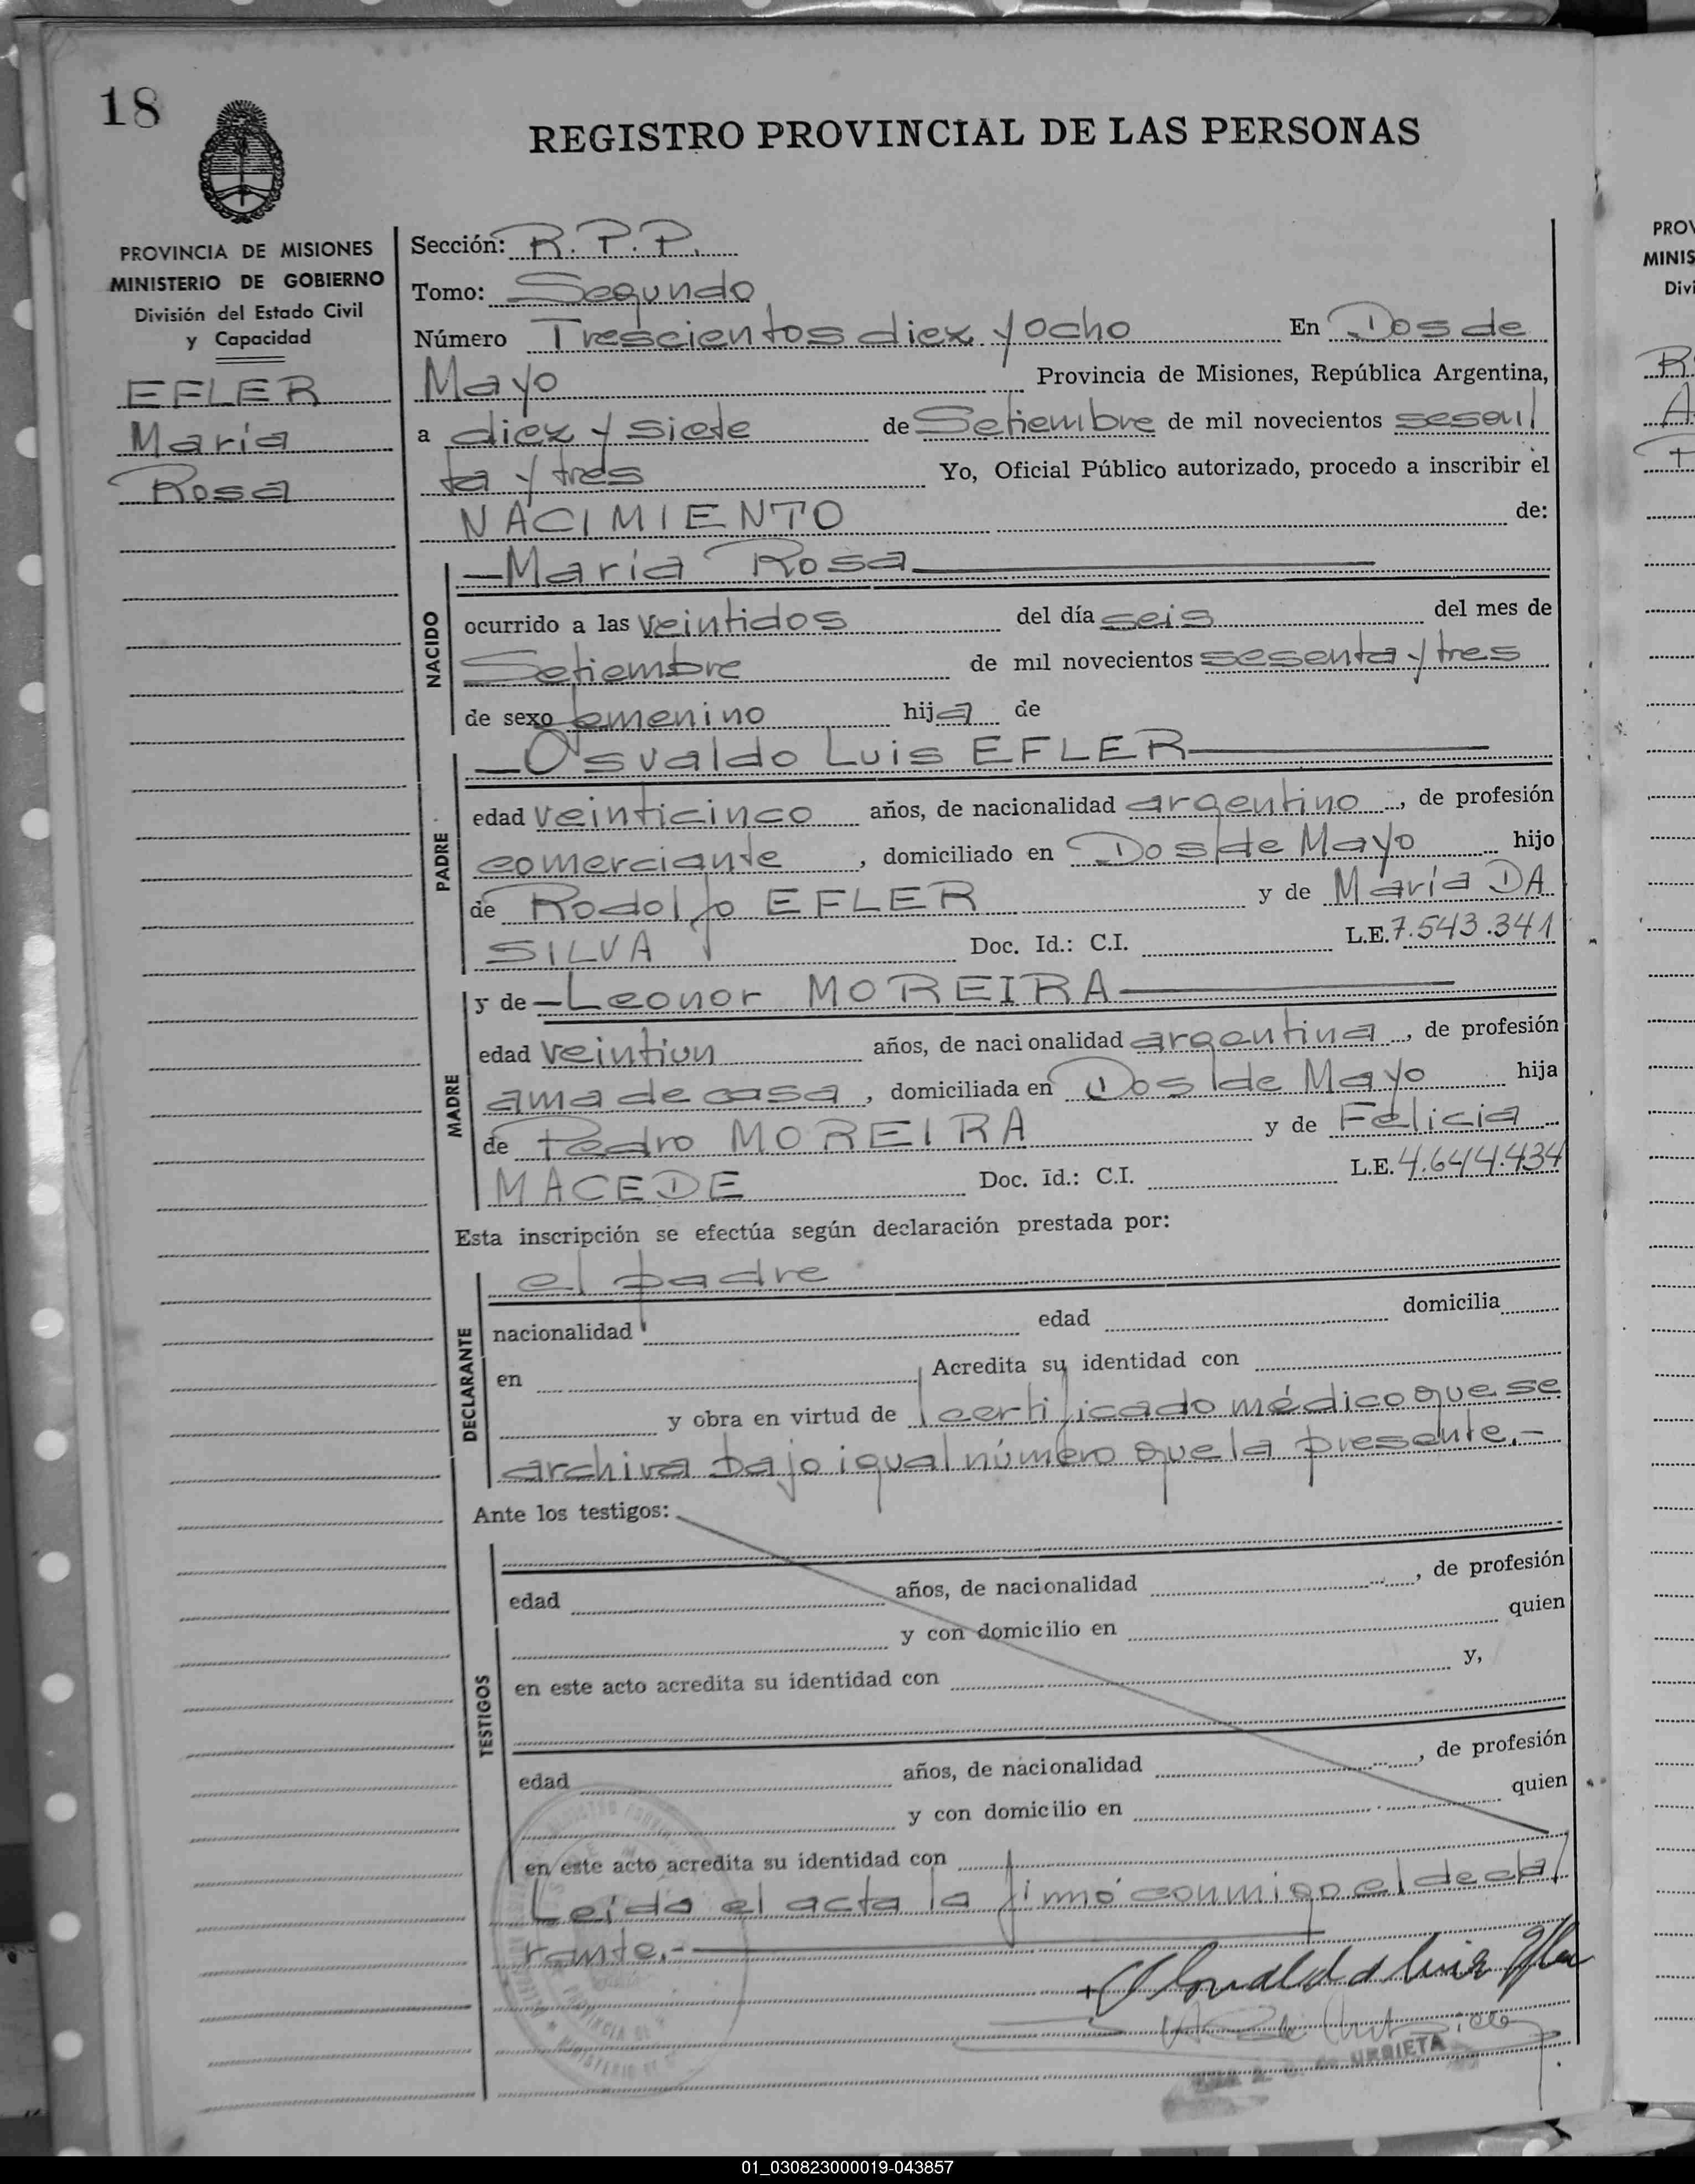 18
REGISTRO PROVINCIAL DE LAS PERSONAS
PROVINCIA DE MISIONES
MINISTERIO DE GOBIERNO
División del Estado Civil
y Capacidad
EFLER
María
Rosa
Sección: R. P. P.
Tomo: Segundo
Número Trescientos diez y ocho En Dos de
Mayo Provincia de Misiones, República Argentina,
a diez y siete de Setiembre de mil novecientos sesen/
ta y tres Yo, Oficial Público autorizado, procedo a inscribir el
NACIMIENTO de:
NACIDO
—María Rosa—
ocurrido a las veintidos del día seis del mes de
Setiembre de mil novecientos sesenta y tres
de sexo femenino hija de
PADRE
—Osvaldo Luis EFLER—
edad veinticinco años, de nacionalidad argentino, de profesión
comerciante, domiciliado en Dos de Mayo hijo
de Rodolfo EFLER y de María DA
SILVA Doc. Id.: C.I. L.E. 7.543.341
MADRE
y de —Leonor MOREIRA—
edad veintiun años, de nacionalidad argentina, de profesión
ama de casa, domiciliada en Dos de Mayo hija
de Pedro MOREIRA y de Felicia
MACEDE Doc. Id.: C.I. L.E. 4.644.434
Esta inscripción se efectúa según declaración prestada por:
DECLARANTE
el padre
nacionalidad edad domicilia
en Acredita su identidad con
y obra en virtud de certificado médico que se
archiva bajo igual número que la presente.-
Ante los testigos:
TESTIGOS
edad años, de nacionalidad , de profesión
y con domicilio en quien
en este acto acredita su identidad con y,
edad años, de nacionalidad , de profesión
y con domicilio en quien
en este acto acredita su identidad con
Leída el acta la firmó conmigo el decla/
rante.-
Osvaldo Luis Efler
URBIETA
PROV
MINIS
Divi
R
A
01_030823000019-043857